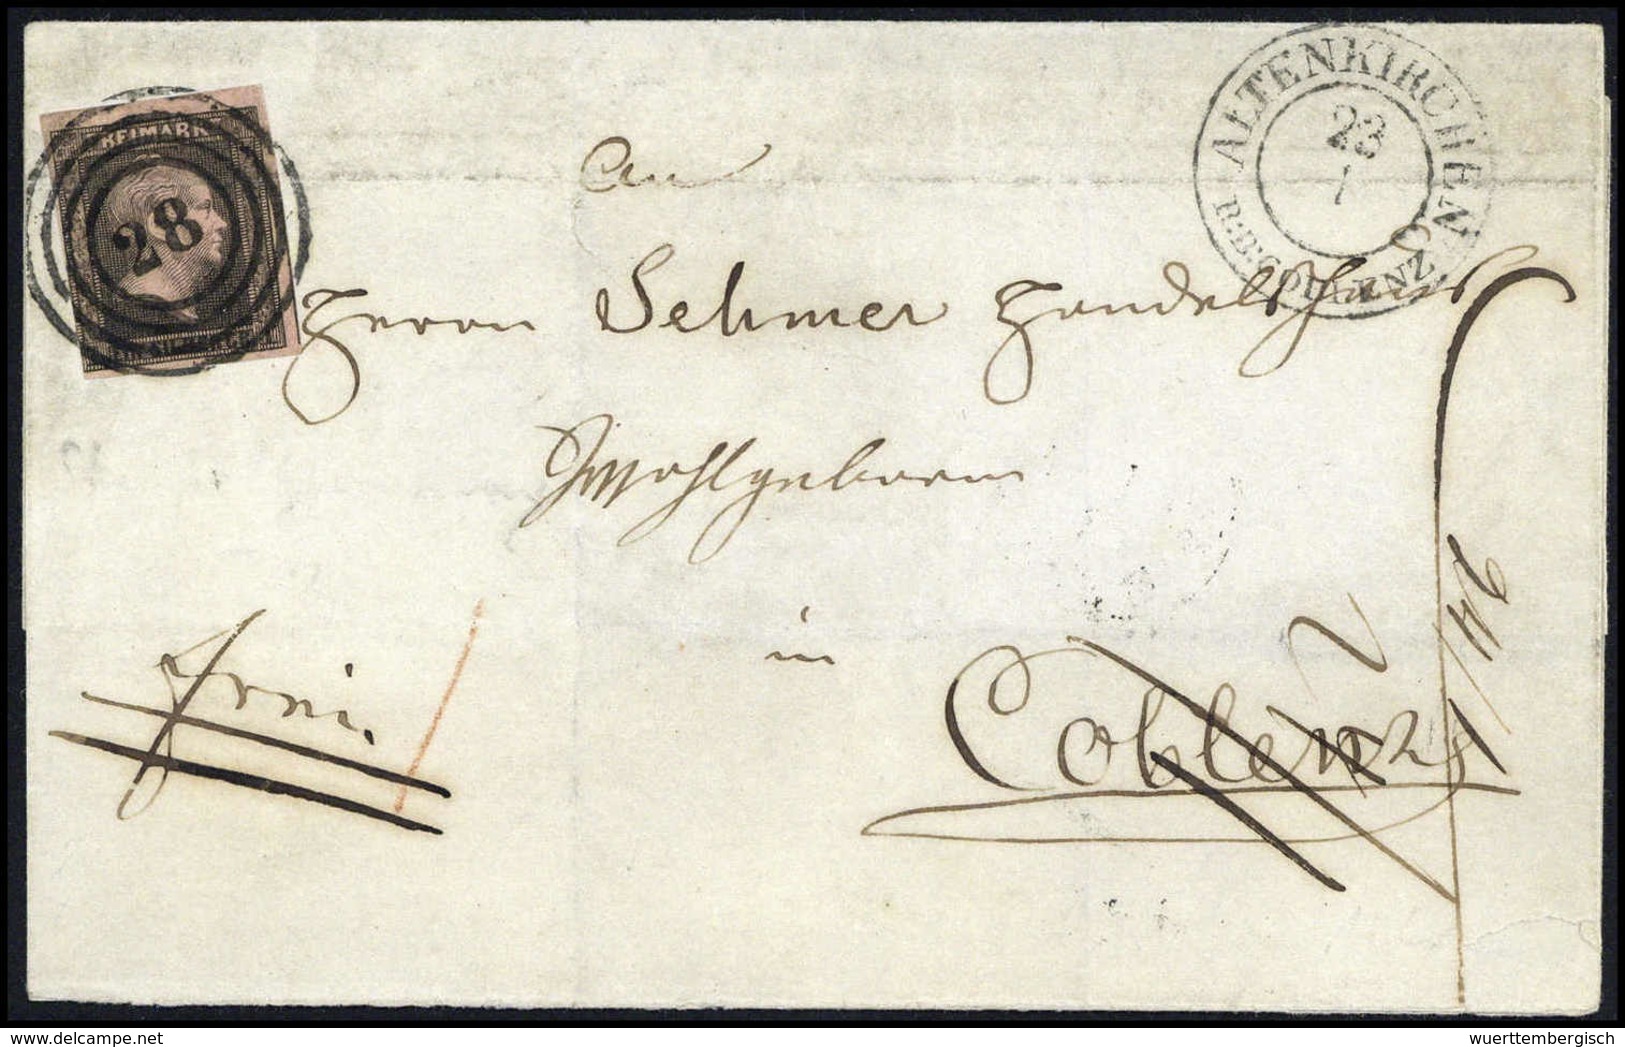 FREIMARKE
28
ALTENKIRCHEN
23
1
R:B:COBLENZ
An
Herrn Sehmer Handels
Wohlgeboren
in
frei.
Coblenz
delcampe.net
wuerttembergisch